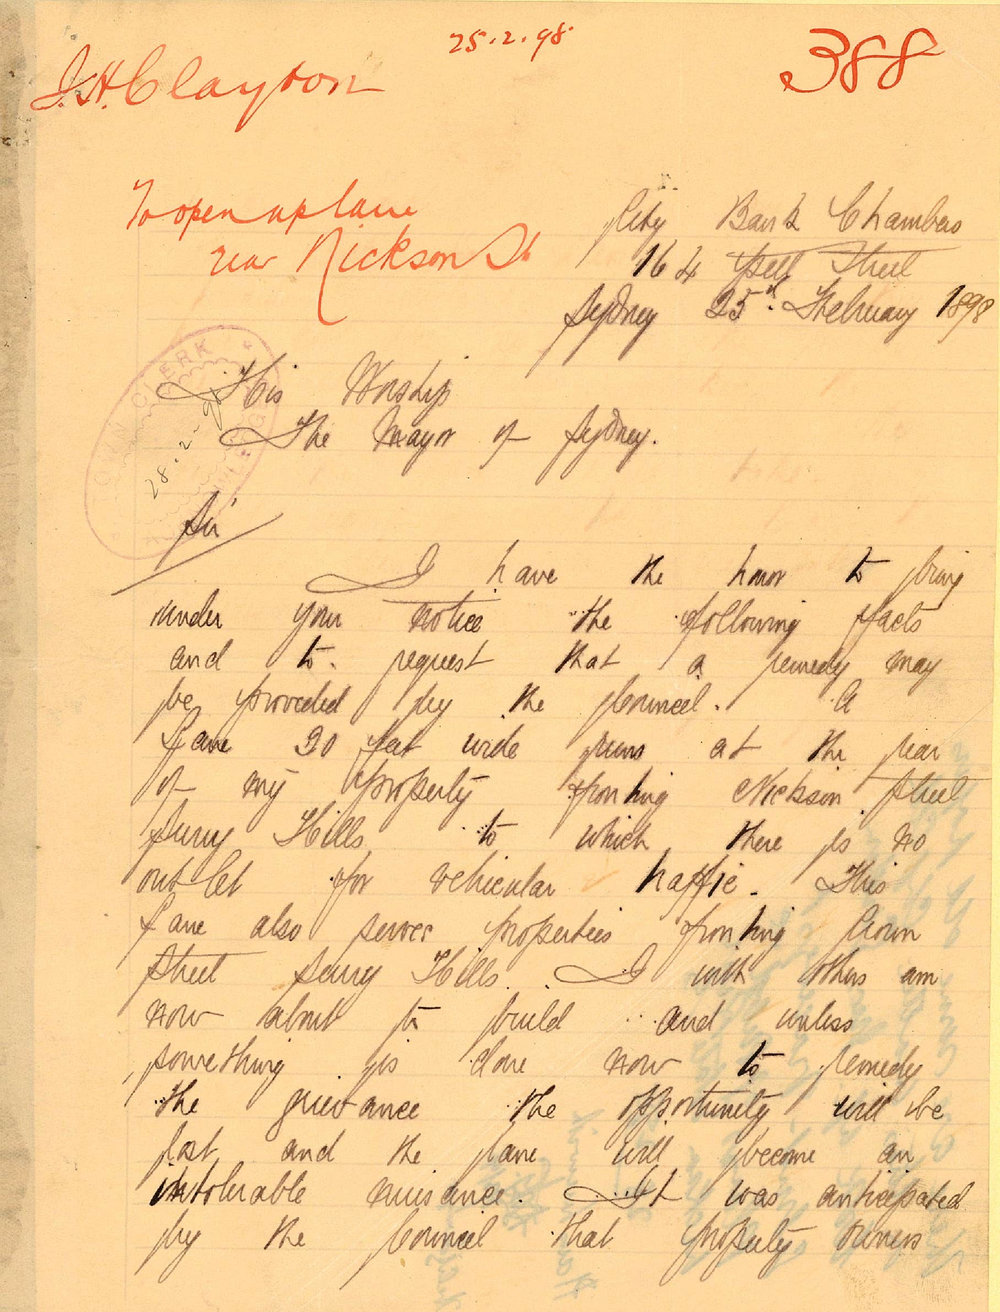 25.2.98
388
J.H. Clayton
To open up lane
rear Nickson St
City Bank Chambers
164 Pitt Street
Sydney 25th February 1898
TOWN CLERK
28.2.98
His Worship
The Mayor of Sydney.
Sir
I have the honor to bring
under your notice the following facts
and to request that a remedy may
be provided by the Council. A
Lane 20 feet wide runs at the rear
of my property fronting Nickson Street
Surry Hills to which there is no
outlet for vehicular traffic. This
Lane also serves properties fronting Crown
Street Surry Hills. I with others am
now about to build and unless
something is done now to remedy
the grievance the opportunity will be
lost and the lane will become an
intolerable nuisance. It was anticipated
by the Council that property owners